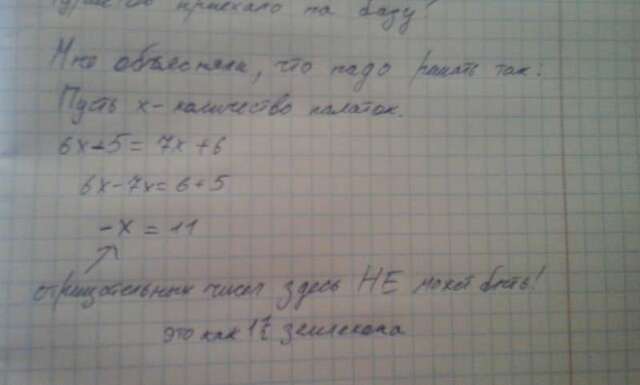 туристов приехало на базу?
Мне объясняли, что надо решать так:
Пусть x - количество палаток.
6x-5 = 7x+6
6x-7x = 6+5
-x = 11
отрицательных чисел здесь НЕ может быть!
это как 1½ землекопа